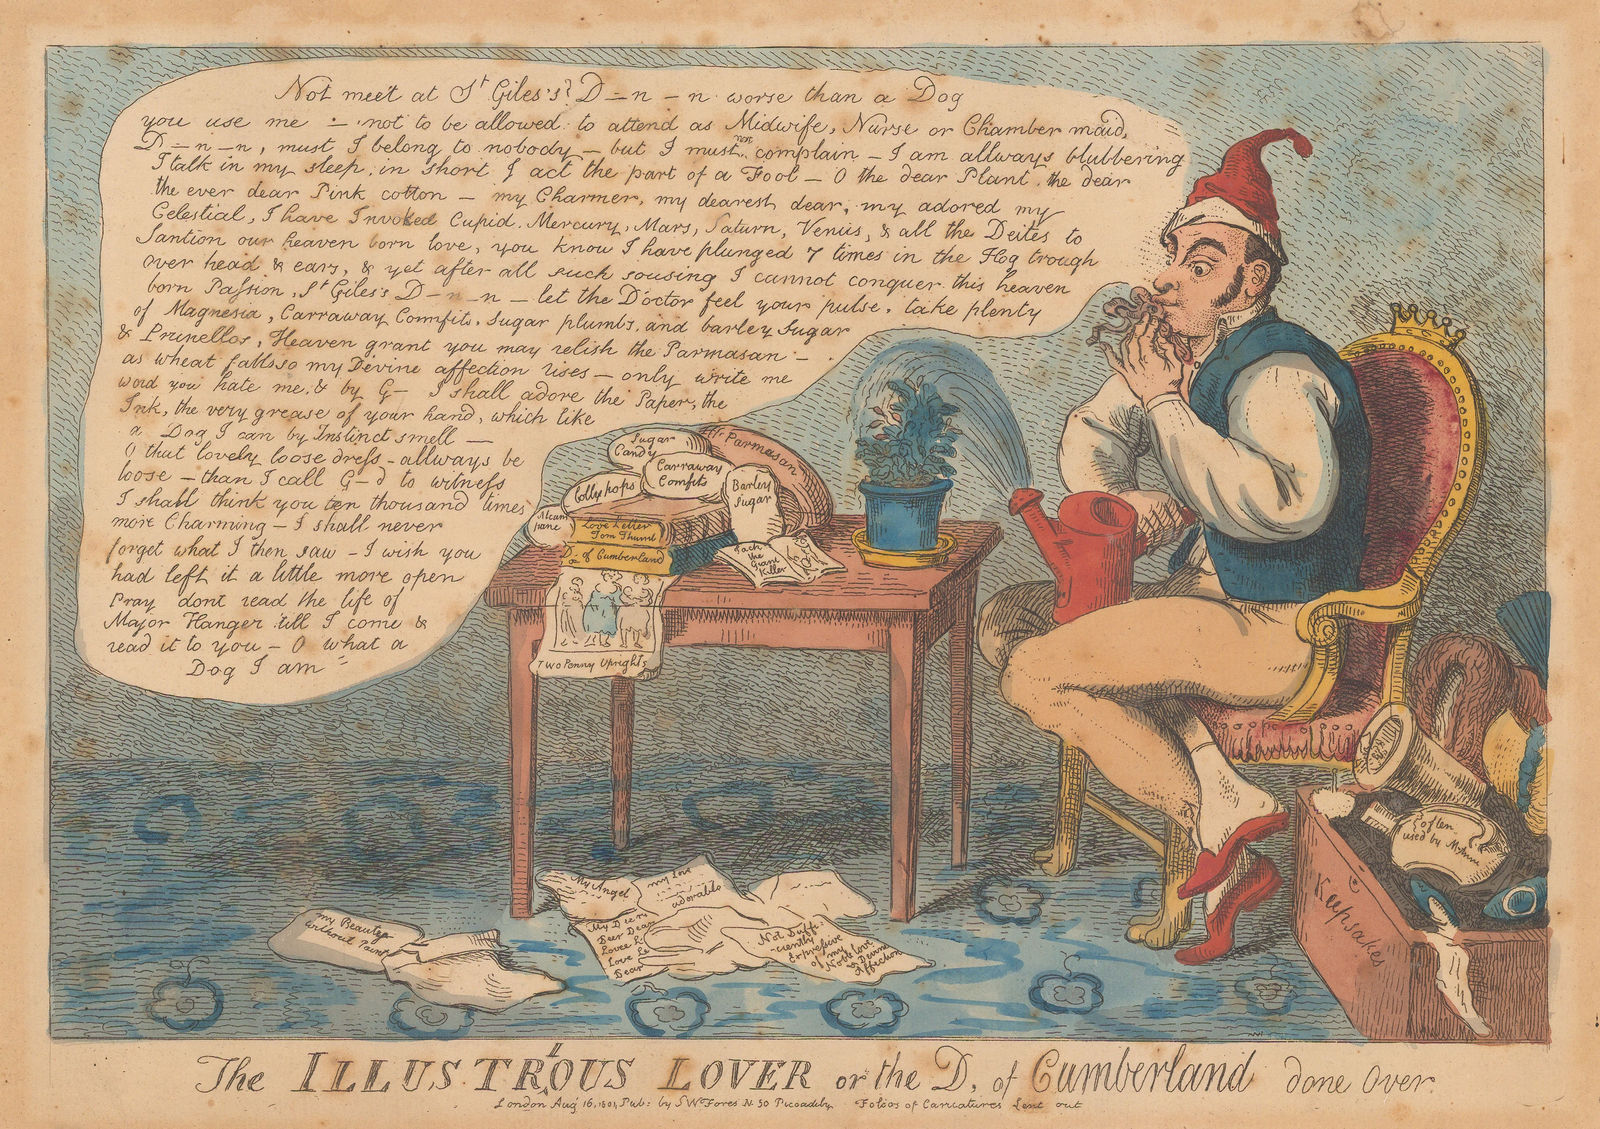 Not meet at St Giles's? D–n–n worse than a Dog
you use me – not to be allowed to attend as Midwife, Nurse or Chamber maid,
D–n–n, must I belong to nobody – but I must not complain – I am allways blubbering
I talk in my sleep, in short I act the part of a Fool – O the dear Plant, the dear
the ever dear Pink cotton – my Charmer, my dearest dear, my adored my
Celestial, I have Invoked Cupid, Mercury, Mars, Saturn, Venus, & all the Deites to
Santion our heaven born love, you know I have plunged 7 times in the Hog trough
over head & ears, & yet after all such sousing I cannot conquer this heaven
born Passion, St Giles's D–n–n – let the Doctor feel your pulse, take plenty
of Magnesia, Carraway Comfits, Sugar plumbs, and barley Sugar
& Prunellos, Heaven grant you may relish the Parmasan –
as wheat falls so my Devine affection rises – only write me
word you hate me, & by G– I shall adore the Paper, the
Ink, the very grease of your hand, which like
a Dog I can by Instinct smell –
O that lovely loose dress – allways be
loose – than I call G–d to witness
I shall think you ten thousand times
more Charming – I shall never
forget what I then saw – I wish you
had left it a little more open
Pray dont read the life of
Major Hanger till I come &
read it to you – O what a
Dog I am
Sugar
Candy
Parmasan
Carraway
Comfits
Lollypops
Barley
Sugar
Love Letter
Tom Thumb
D– of Cumberland
Jack
the
Giant
Killer
Two Penny Uprights
My Angel
my Love
adorable
my Beautey
without Paint
My Deer
Deer Dear
Love
Dear
Not Suffi-
ciently
Expresive
of my
Noble love
& Devine
Affection
often
used by
Keepsakes
The ILLUSTROUS LOVER or the D, of Cumberland done Over
I
London Aug 16, 1801, Pub: by S W Fores N. 50 Piccadilly Folios of Caricatures Lent out